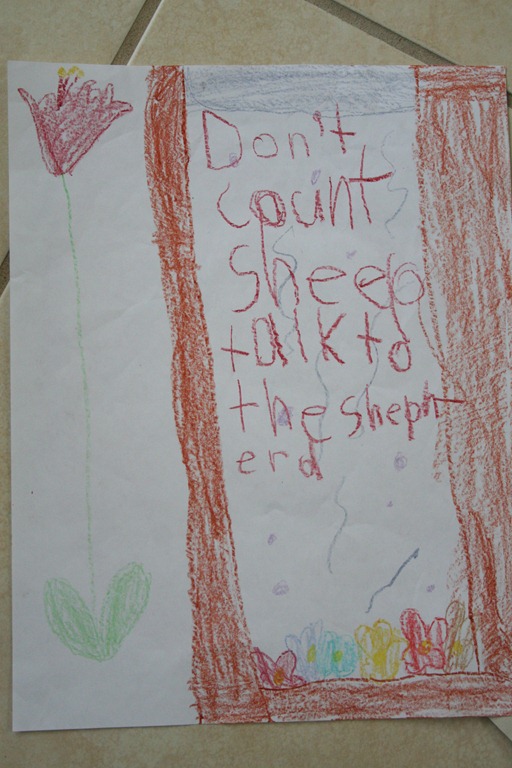 Don't
count
sheep
talk to
the sheph
erd